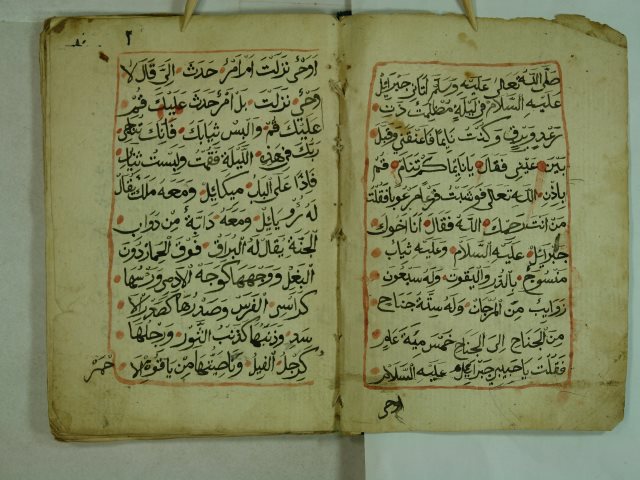 صلى الله تعالى عليه وسلم اتاني جبرائل
عليه السلام في ليلة مظلمة ذات
رعد وبرق وكنت نايما فاعتنقني وقبل
بين عيني فقال يا نايما كم تنام قم
باذن الله تعالى فوثبت مرعوبا فقلت
من انت رحمك الله فقال انا اخوك
جبرائل عليه السلام وعليه ثياب
منسوج بالدر والياقوت وله سبعون
زوايب من المرجان وله ستة جناح
من الجناح الى الجناح خمس مية عام
فقلت يا حبيبي جبرائل عليه السلام
اوحي
٢
اوحي نزلت او امر حدث الى قال لا
وحي نزلت بل امر حدث عليك قم
عليك قم والبس ثيابك فانك تناجي
ربك في هذه الليلة فقمت ولبست ثيابي
فاذا على الباب ميكايل ومعه ملك يقال
له روبايل ومعه دابة من دواب
الجنة يقال له البراق فوق الحمار دون
البغل ووجهها كوجه الادمي ورسها
كراس الفرس وصدرها كصدر الا
سد وذنبها كذنب الثور ورجلها
كرجل الفيل وناصيتها من ياقوة الا
حمر